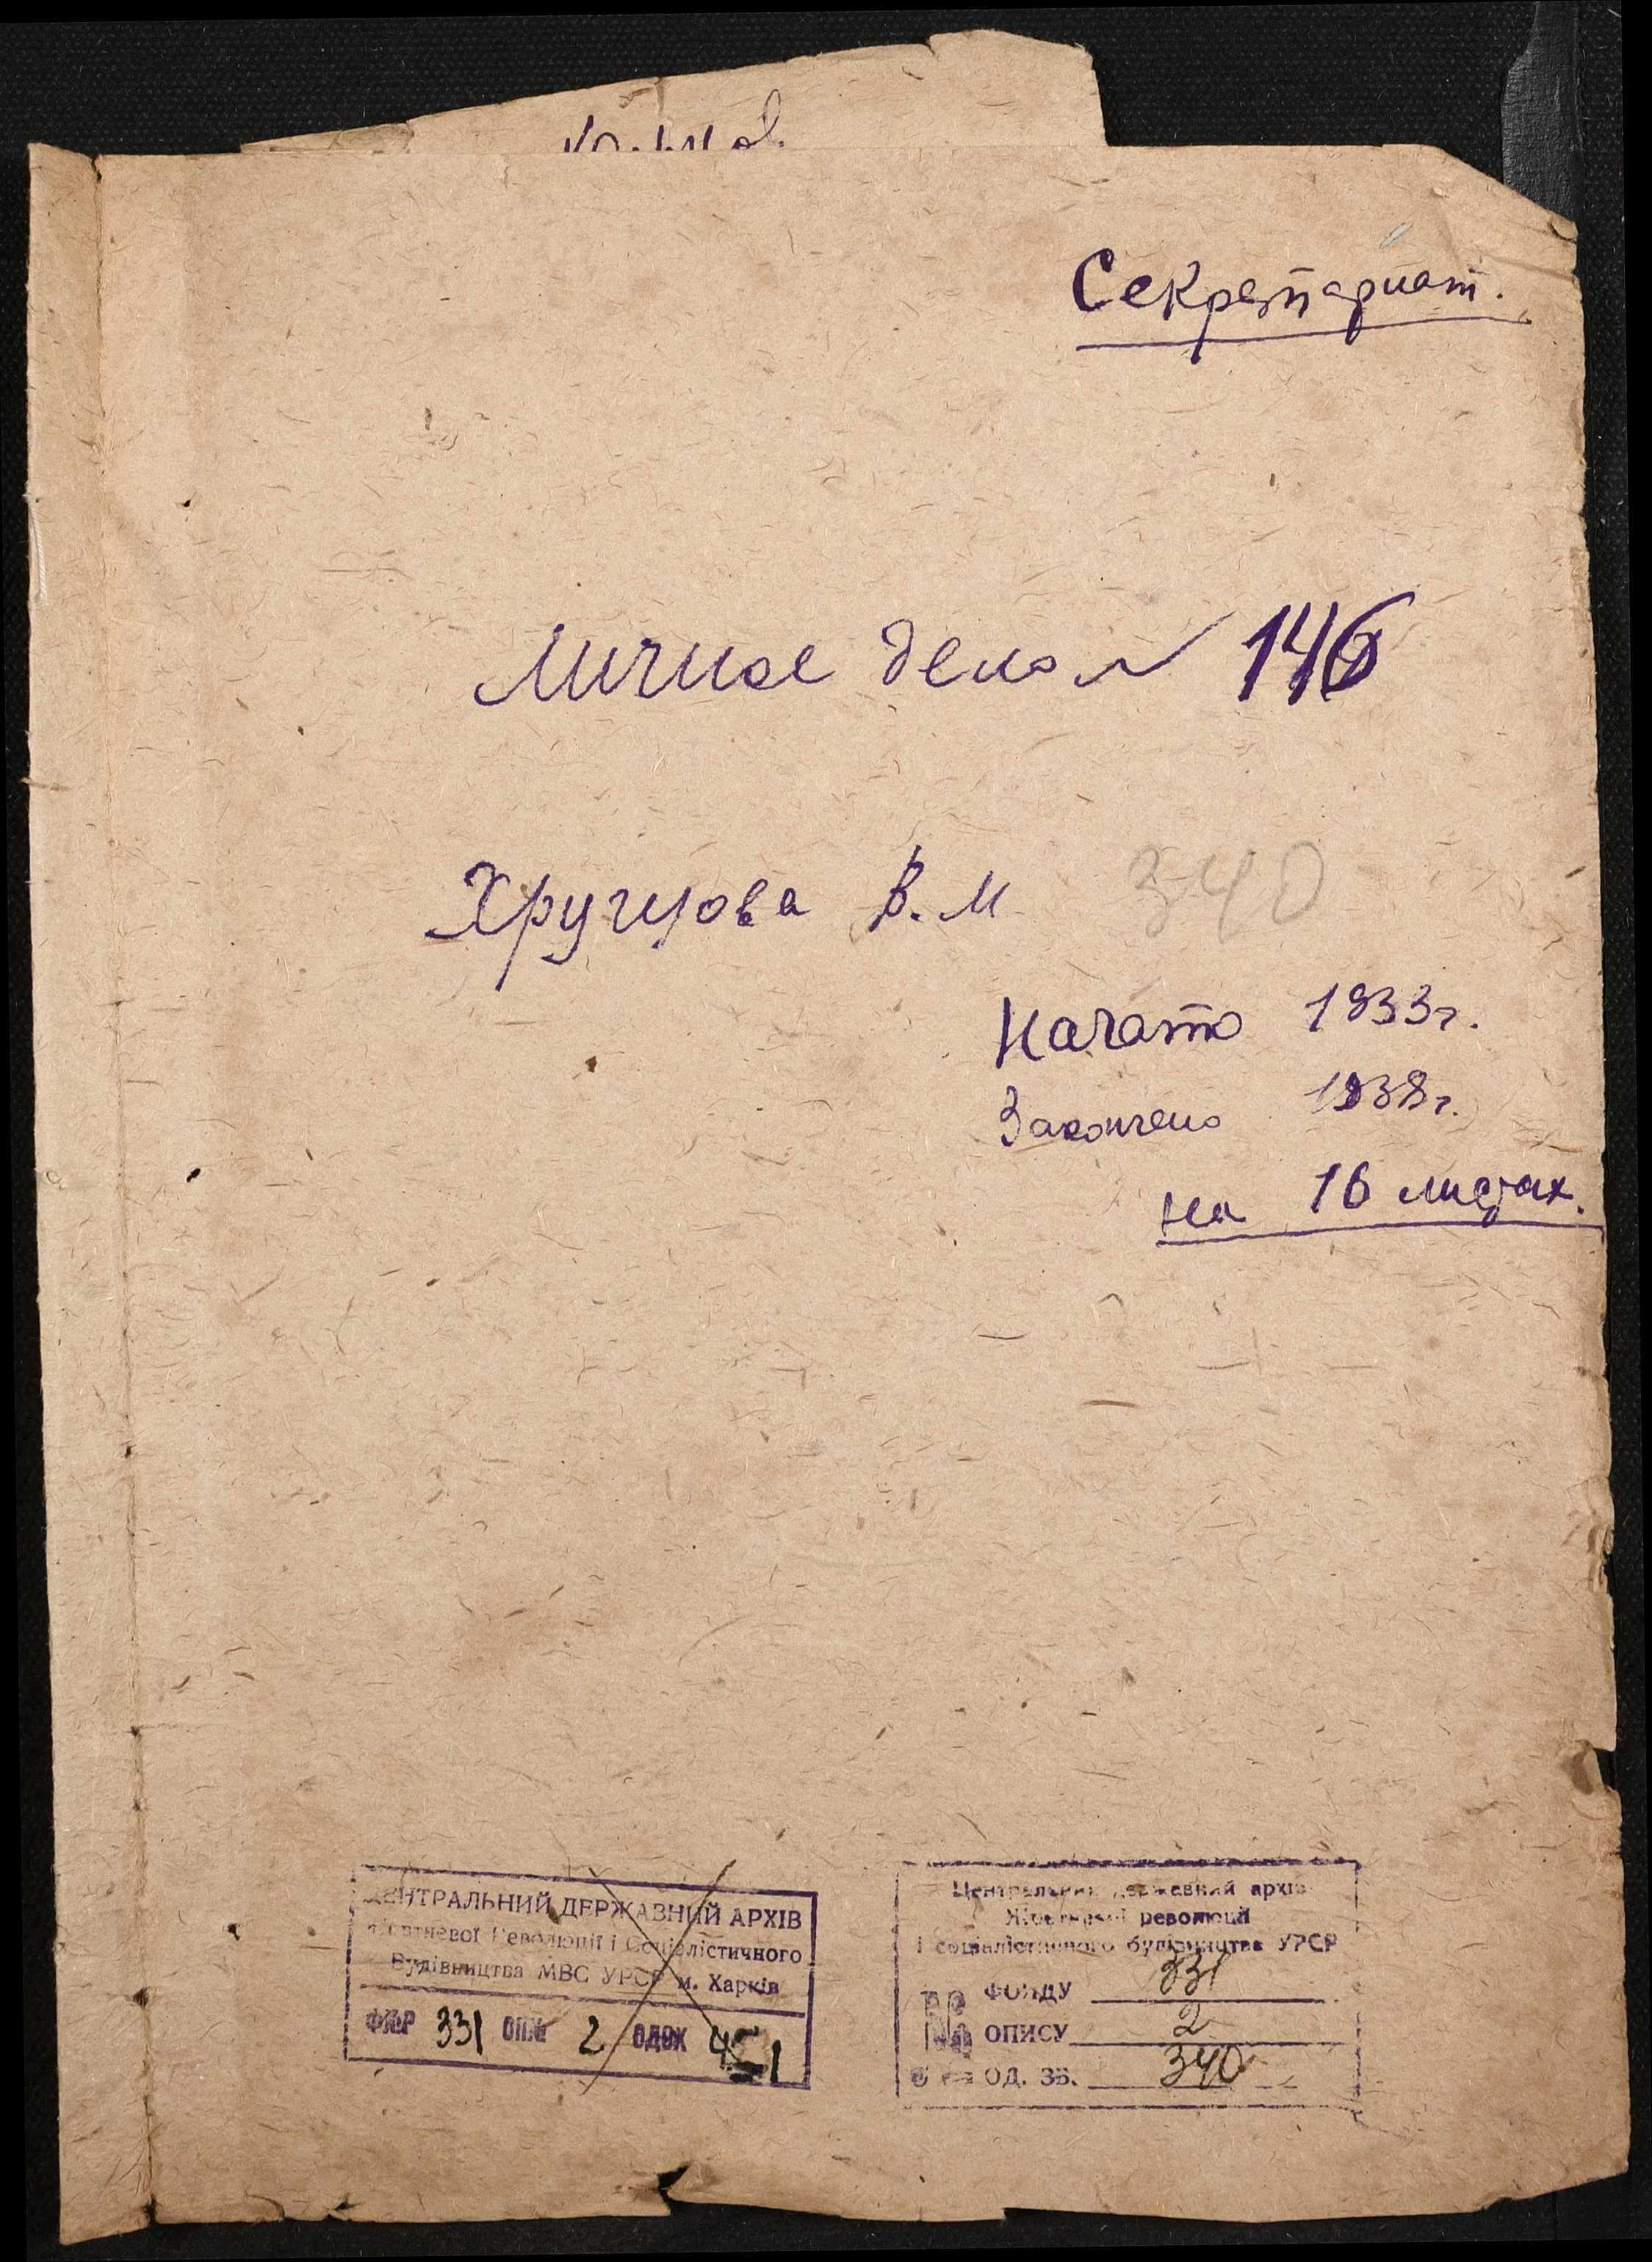 Секретариат.
Личное дело № 146
Хрущова В. М
340
Начато 1933г.
Закончено 1938г.
на 16 листах.
ЦЕНТРАЛЬНИЙ ДЕРЖАВНИЙ АРХІВ
Жовтневої Революції і Соціалістичного
Будівництва МВС УРСР м. Харків
331 ОП№ 2
Центральний державний архів
Жовтневої революції
і соціалістичного будівництва УРСР
№ ФОНДУ 331
ОПИСУ 2
ОД. ЗБ. 340